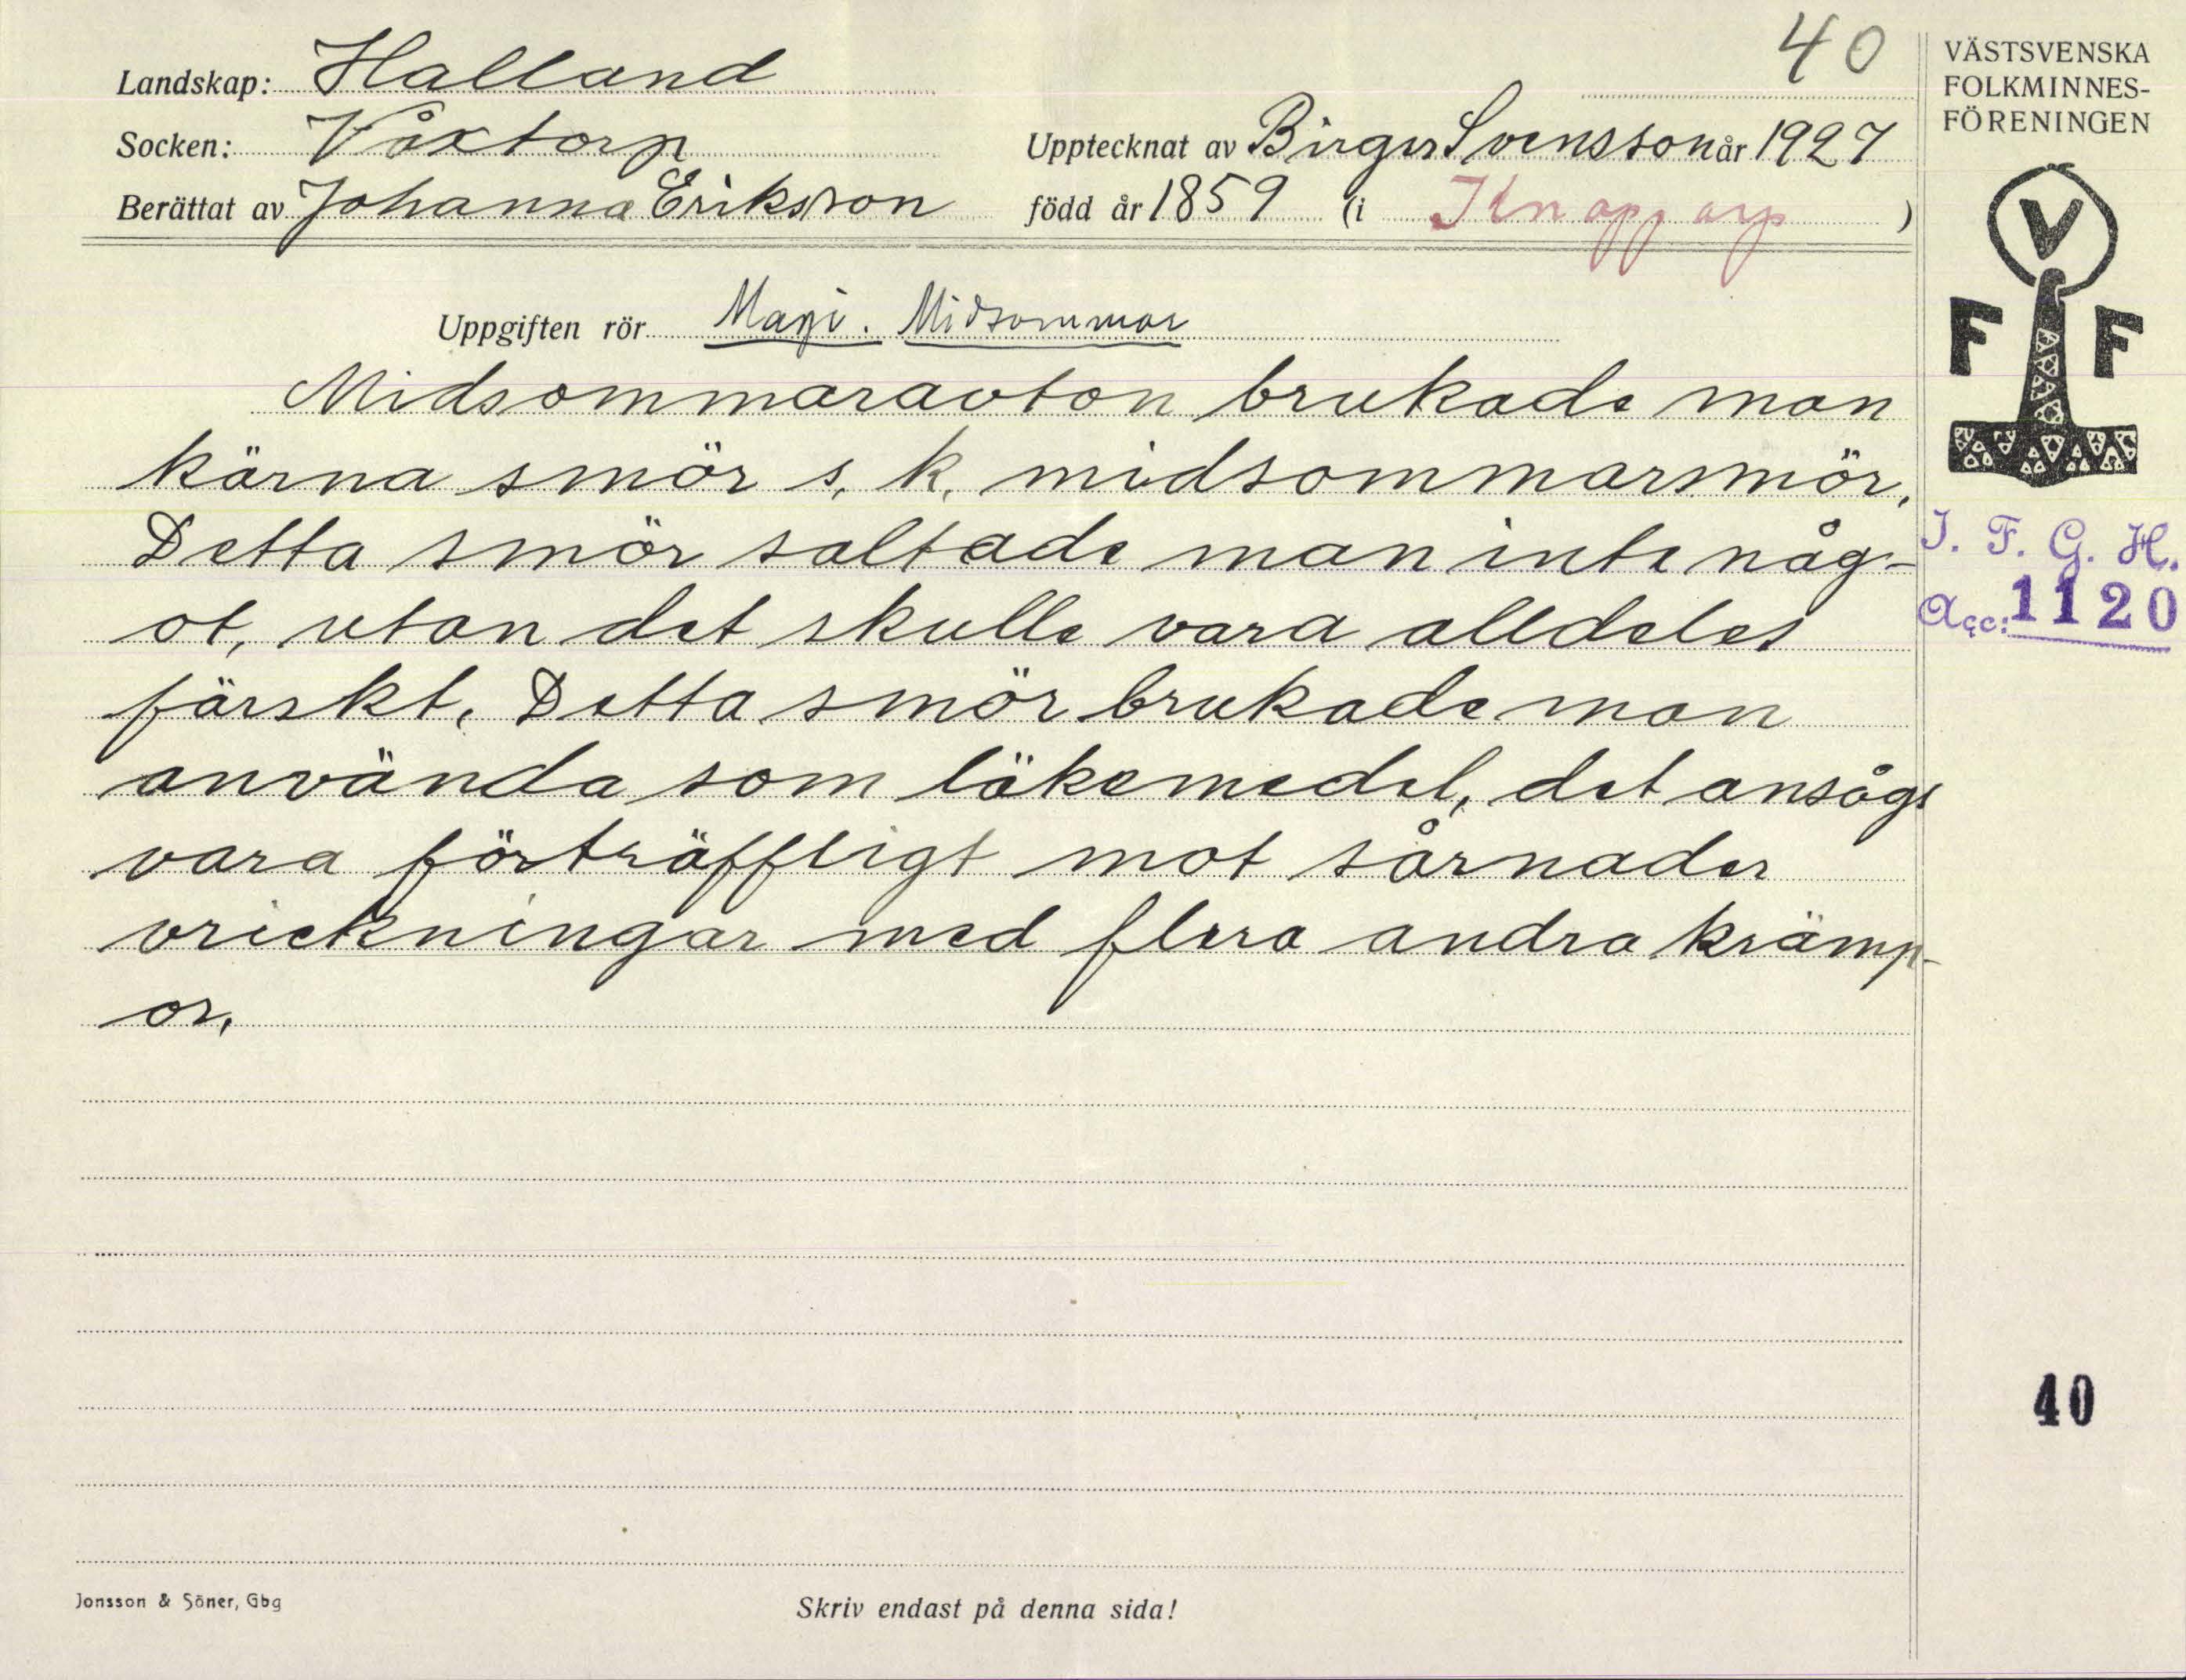 40
Landskap: Halland
Socken: Våxtorp
Upptecknat av Birger Svensson år 1927
Berättat av Johanna Eriksson
född år 1859 (i Knapparp)
Uppgiften rör Magi. Midsommar
Midsommarafton brukade man
kärna smör s. k. midsommarsmör.
Detta smör saltade man inte någ-
ot, utan det skulle vara alldeles
färskt. Detta smör brukade man
använda som läkemedel, det ansågs
vara förträffligt mot sårnader
vrickningar med flera andra krämp-
or.
Jonsson & Söner, Gbg
Skriv endast på denna sida!
VÄSTSVENSKA
FOLKMINNES-
FÖRENINGEN
V
F F
I. F. G. H.
Acc: 1120
40